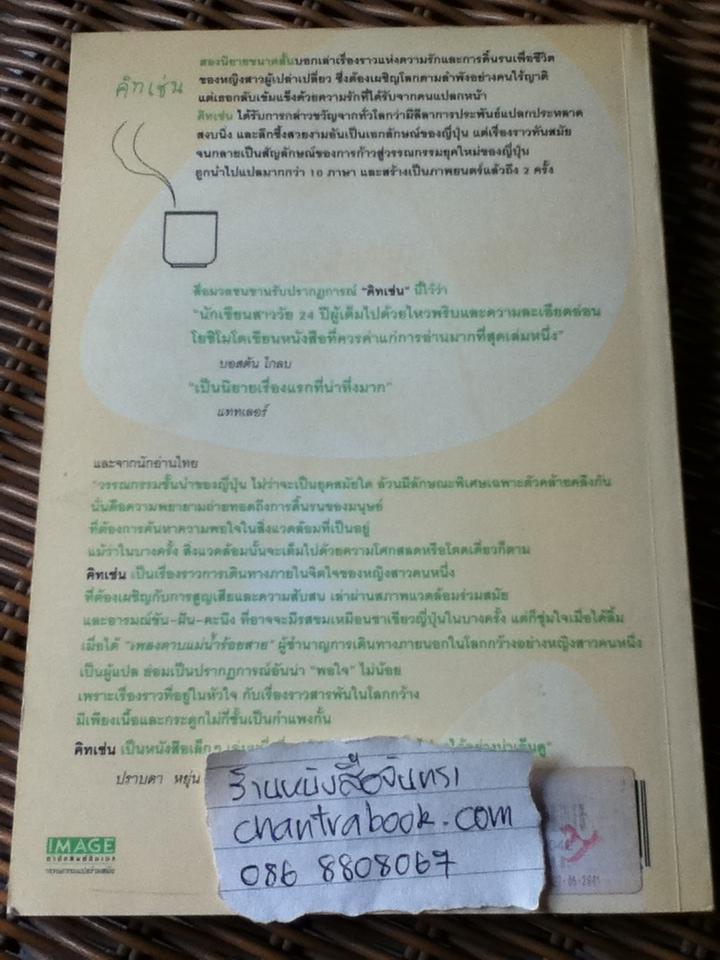 คิทเช่น
สองนิยายขนาดสั้นบอกเล่าเรื่องราวแห่งความรักและการดิ้นรนเพื่อชีวิต
ของหญิงสาวผู้เปล่าเปลี่ยว ซึ่งต้องเผชิญโลกตามลำพังอย่างคนไร้ญาติ
แต่เธอกลับเข้มแข็งด้วยความรักที่ได้รับจากคนแปลกหน้า
คิทเช่น ได้รับการกล่าวขวัญจากทั่วโลกว่ามีลีลาการประพันธ์แปลกประหลาด
สงบนิ่ง และลึกซึ้งสวยงามอันเป็นเอกลักษณ์ของญี่ปุ่น แต่เรื่องราวทันสมัย
จนกลายเป็นสัญลักษณ์ของการก้าวสู่วรรณกรรมยุคใหม่ของญี่ปุ่น
ถูกนำไปแปลมากกว่า 10 ภาษา และสร้างเป็นภาพยนตร์แล้วถึง 2 ครั้ง
สื่อมวลชนขานรับปรากฏการณ์ "คิทเช่น" นี้ไว้ว่า
"นักเขียนสาววัย 24 ปีผู้เต็มไปด้วยไหวพริบและความละเอียดอ่อน
โยชิโมโตเขียนหนังสือที่ควรค่าแก่การอ่านมากที่สุดเล่มหนึ่ง"
บอสตัน โกลบ
"เป็นนิยายเรื่องแรกที่น่าทึ่งมาก"
แททเลอร์
และจากนักอ่านไทย
"วรรณกรรมชั้นนำของญี่ปุ่น ไม่ว่าจะเป็นยุคสมัยใด ล้วนมีลักษณะพิเศษเฉพาะตัวคล้ายคลึงกัน
นั่นคือความพยายามถ่ายทอดถึงการดิ้นรนของมนุษย์
ที่ต้องการค้นหาความพอใจในสิ่งแวดล้อมที่เป็นอยู่
แม้ว่าในบางครั้ง สิ่งแวดล้อมนั้นจะเต็มไปด้วยความโศกสลดหรือโดดเดี่ยวก็ตาม
คิทเช่น เป็นเรื่องราวการเดินทางภายในจิตใจของหญิงสาวคนหนึ่ง
ที่ต้องเผชิญกับการสูญเสียและความสับสน เล่าผ่านสภาพแวดล้อมร่วมสมัย
และอารมณ์ขัน-ฝัน-คะนึง ที่อาจจะมีรสขมเหมือนชาเขียวญี่ปุ่นในบางครั้ง แต่ก็ชุ่มใจเมื่อได้ลิ้ม
เมื่อได้ "เพลงดาบแม่น้ำร้อยสาย" ผู้ชำนาญการเดินทางภายนอกในโลกกว้างอย่างหญิงสาวคนหนึ่ง
เป็นผู้แปล ย่อมเป็นปรากฏการณ์อันน่า "พอใจ" ไม่น้อย
เพราะเรื่องราวที่อยู่ในหัวใจ กับเรื่องราวสารพันในโลกกว้าง
มีเพียงเนื้อและกระดูกไม่กี่ชั้นเป็นกำแพงกั้น
คิทเช่น เป็นหนังสือเล็กๆ
ปราบดา หยุ่น
ร้านหนังสือจันทรา
chantrabook.com
086 8808067
IMAGE